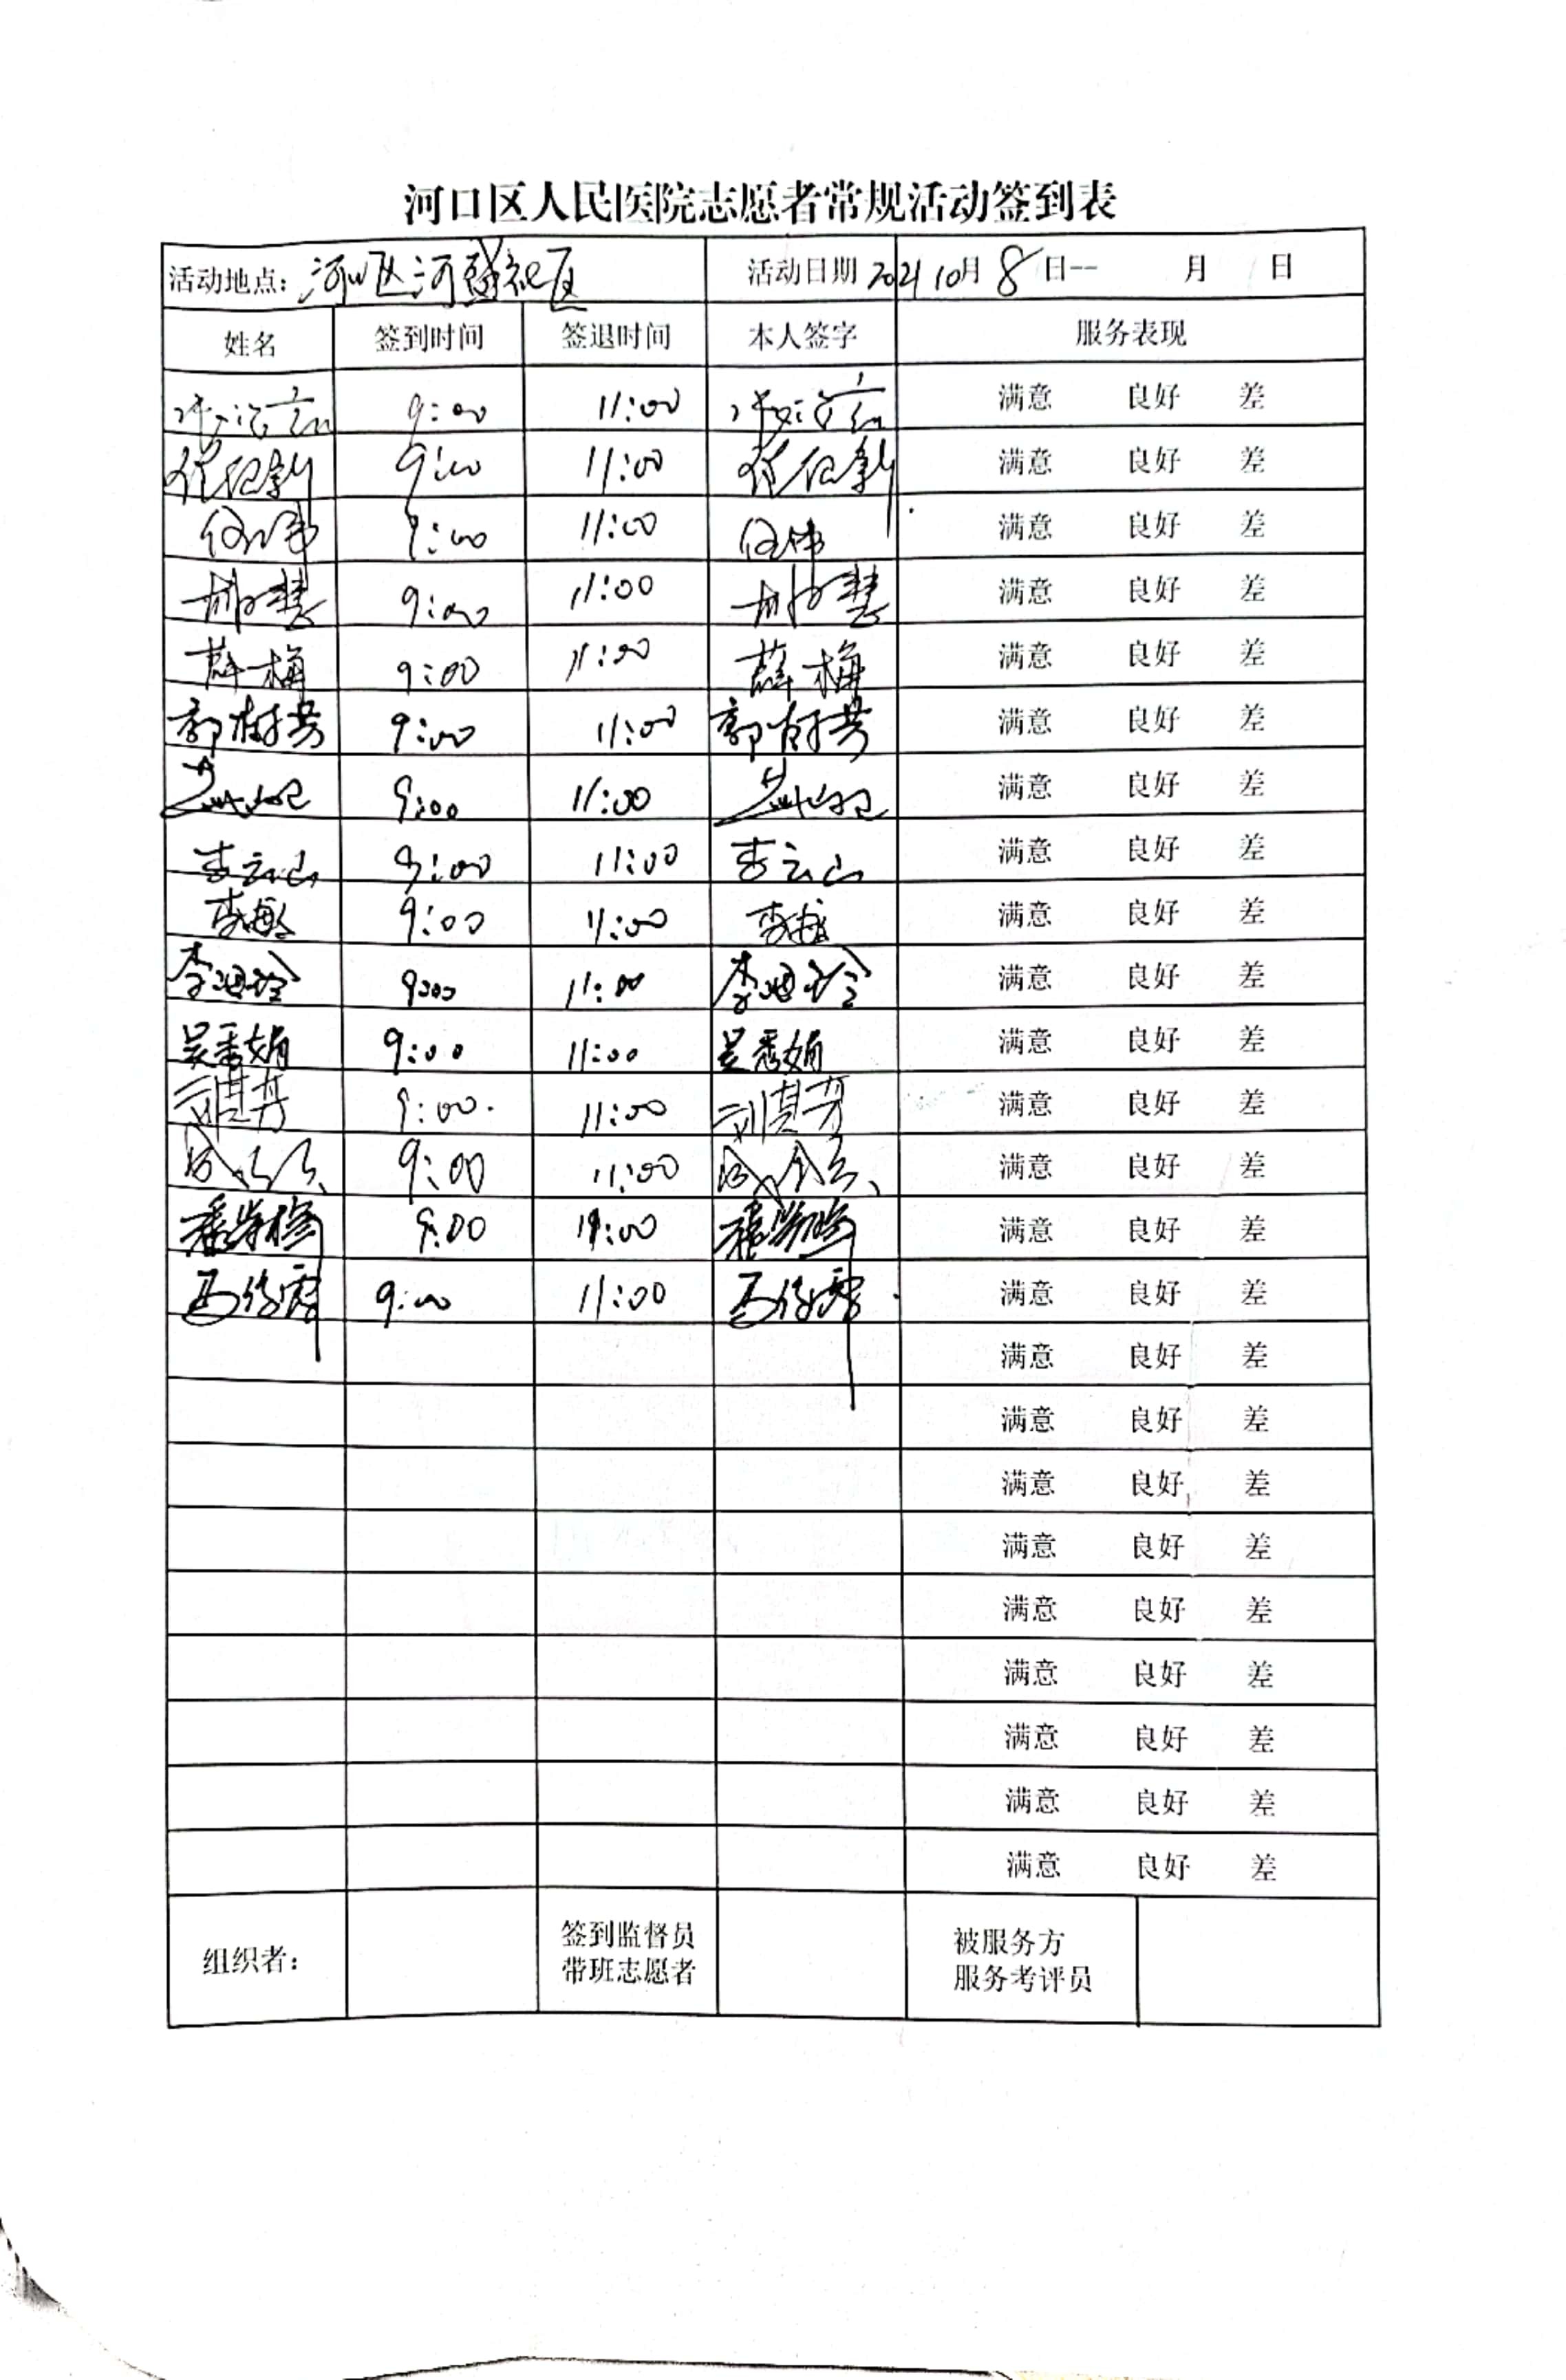 河口区人民医院志愿者常规活动签到表
活动地点: 河口区河 社区 活动日期 2021 10月 8日-- 月 日
姓名 签到时间 签退时间 本人签字 服务表现
9:00 11:00 满意 良好 差
9:00 11:00 满意 良好 差
9:00 11:00 满意 良好 差
9:00 11:00 满意 良好 差
薛梅 9:00 11:00 薛梅 满意 良好 差
郭树芳 9:00 11:00 郭树芳 满意 良好 差
9:00 11:00 满意 良好 差
李云山 9:00 11:00 李云山 满意 良好 差
李敏 9:00 11:00 李敏 满意 良好 差
9:00 11:00 满意 良好 差
吴秀娟 9:00 11:00 吴秀娟 满意 良好 差
刘其芳 9:00. 11:00 刘其芳 满意 良好 差
9:00 11:00 满意 良好 差
9:00 11:00 满意 良好 差
9:00 11:00 满意 良好 差
满意 良好 差
满意 良好 差
满意 良好 差
满意 良好 差
满意 良好 差
满意 良好 差
满意 良好 差
满意 良好 差
满意 良好 差
组织者: 签到监督员 被服务方
带班志愿者 服务考评员